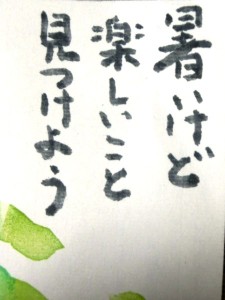 暑いけど
楽しいこと
見つけよう